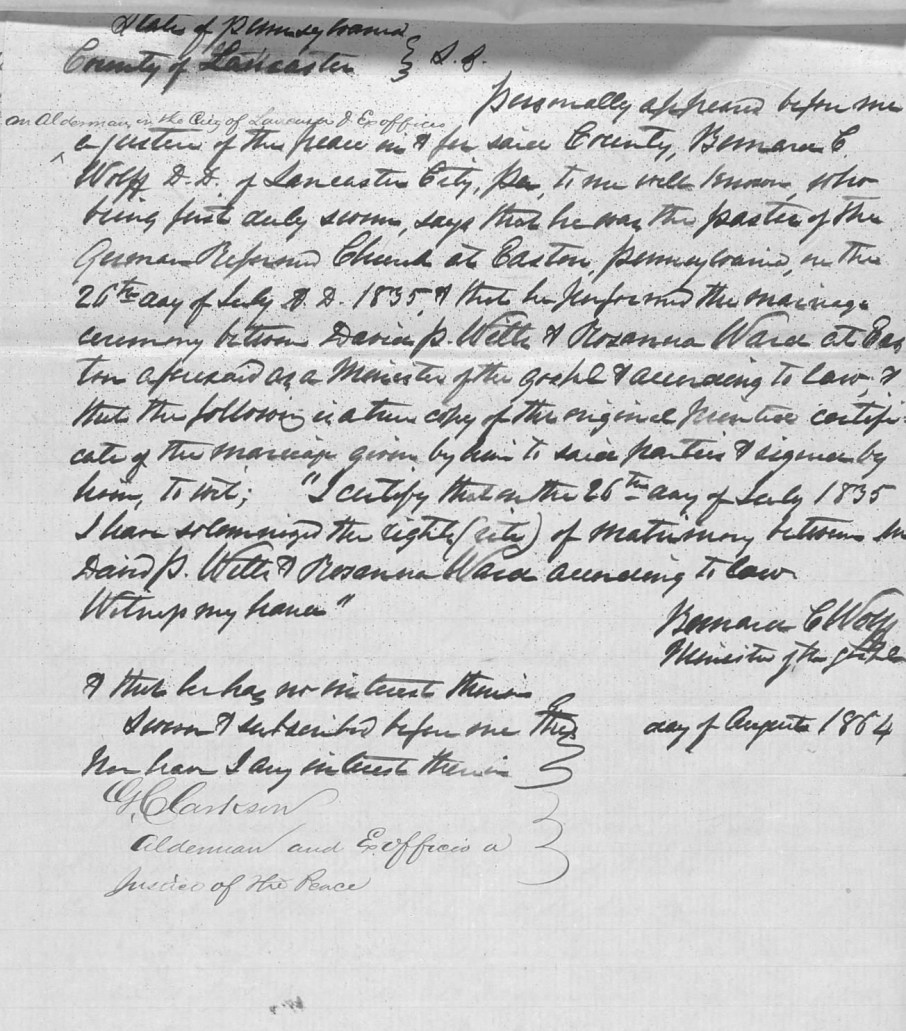 State of Pennsylvania
County of Lancaster } S.S.
Personally appeared before me
an Alderman in the City of Lancaster & Exofficio
a justice of the peace in & for said County, Bernard C.
Wolff D.D. of Lancaster City, Pa, to me well known, who
being first duly sworn, says that he was the pastor of the
German Reformed Church at Easton, Pennsylvania, on the
26th day of July A.D. 1835, & that he performed the marriage
ceremony between David P. Weltz & Rosanna Ward at Eas
ton aforesaid as a Minister of the gospel & according to law, &
that the following is a true copy of the original certifi-
cate of the marriage given by him to said parties & signed by
him, to wit; "I certify that on the 26th day of July 1835
I have solemnized the rights (rite) of matrimony between
David P. Weltz & Rosanna Ward according to law
Witness my hand"
Bernard C Wolff
Minister of the gospel
& that he has no interest therein
Sworn & subscribed before me this } day of August 1864
Nor have I any interest therein
G. Clarkson
Alderman and Exofficio a
Justice of the Peace